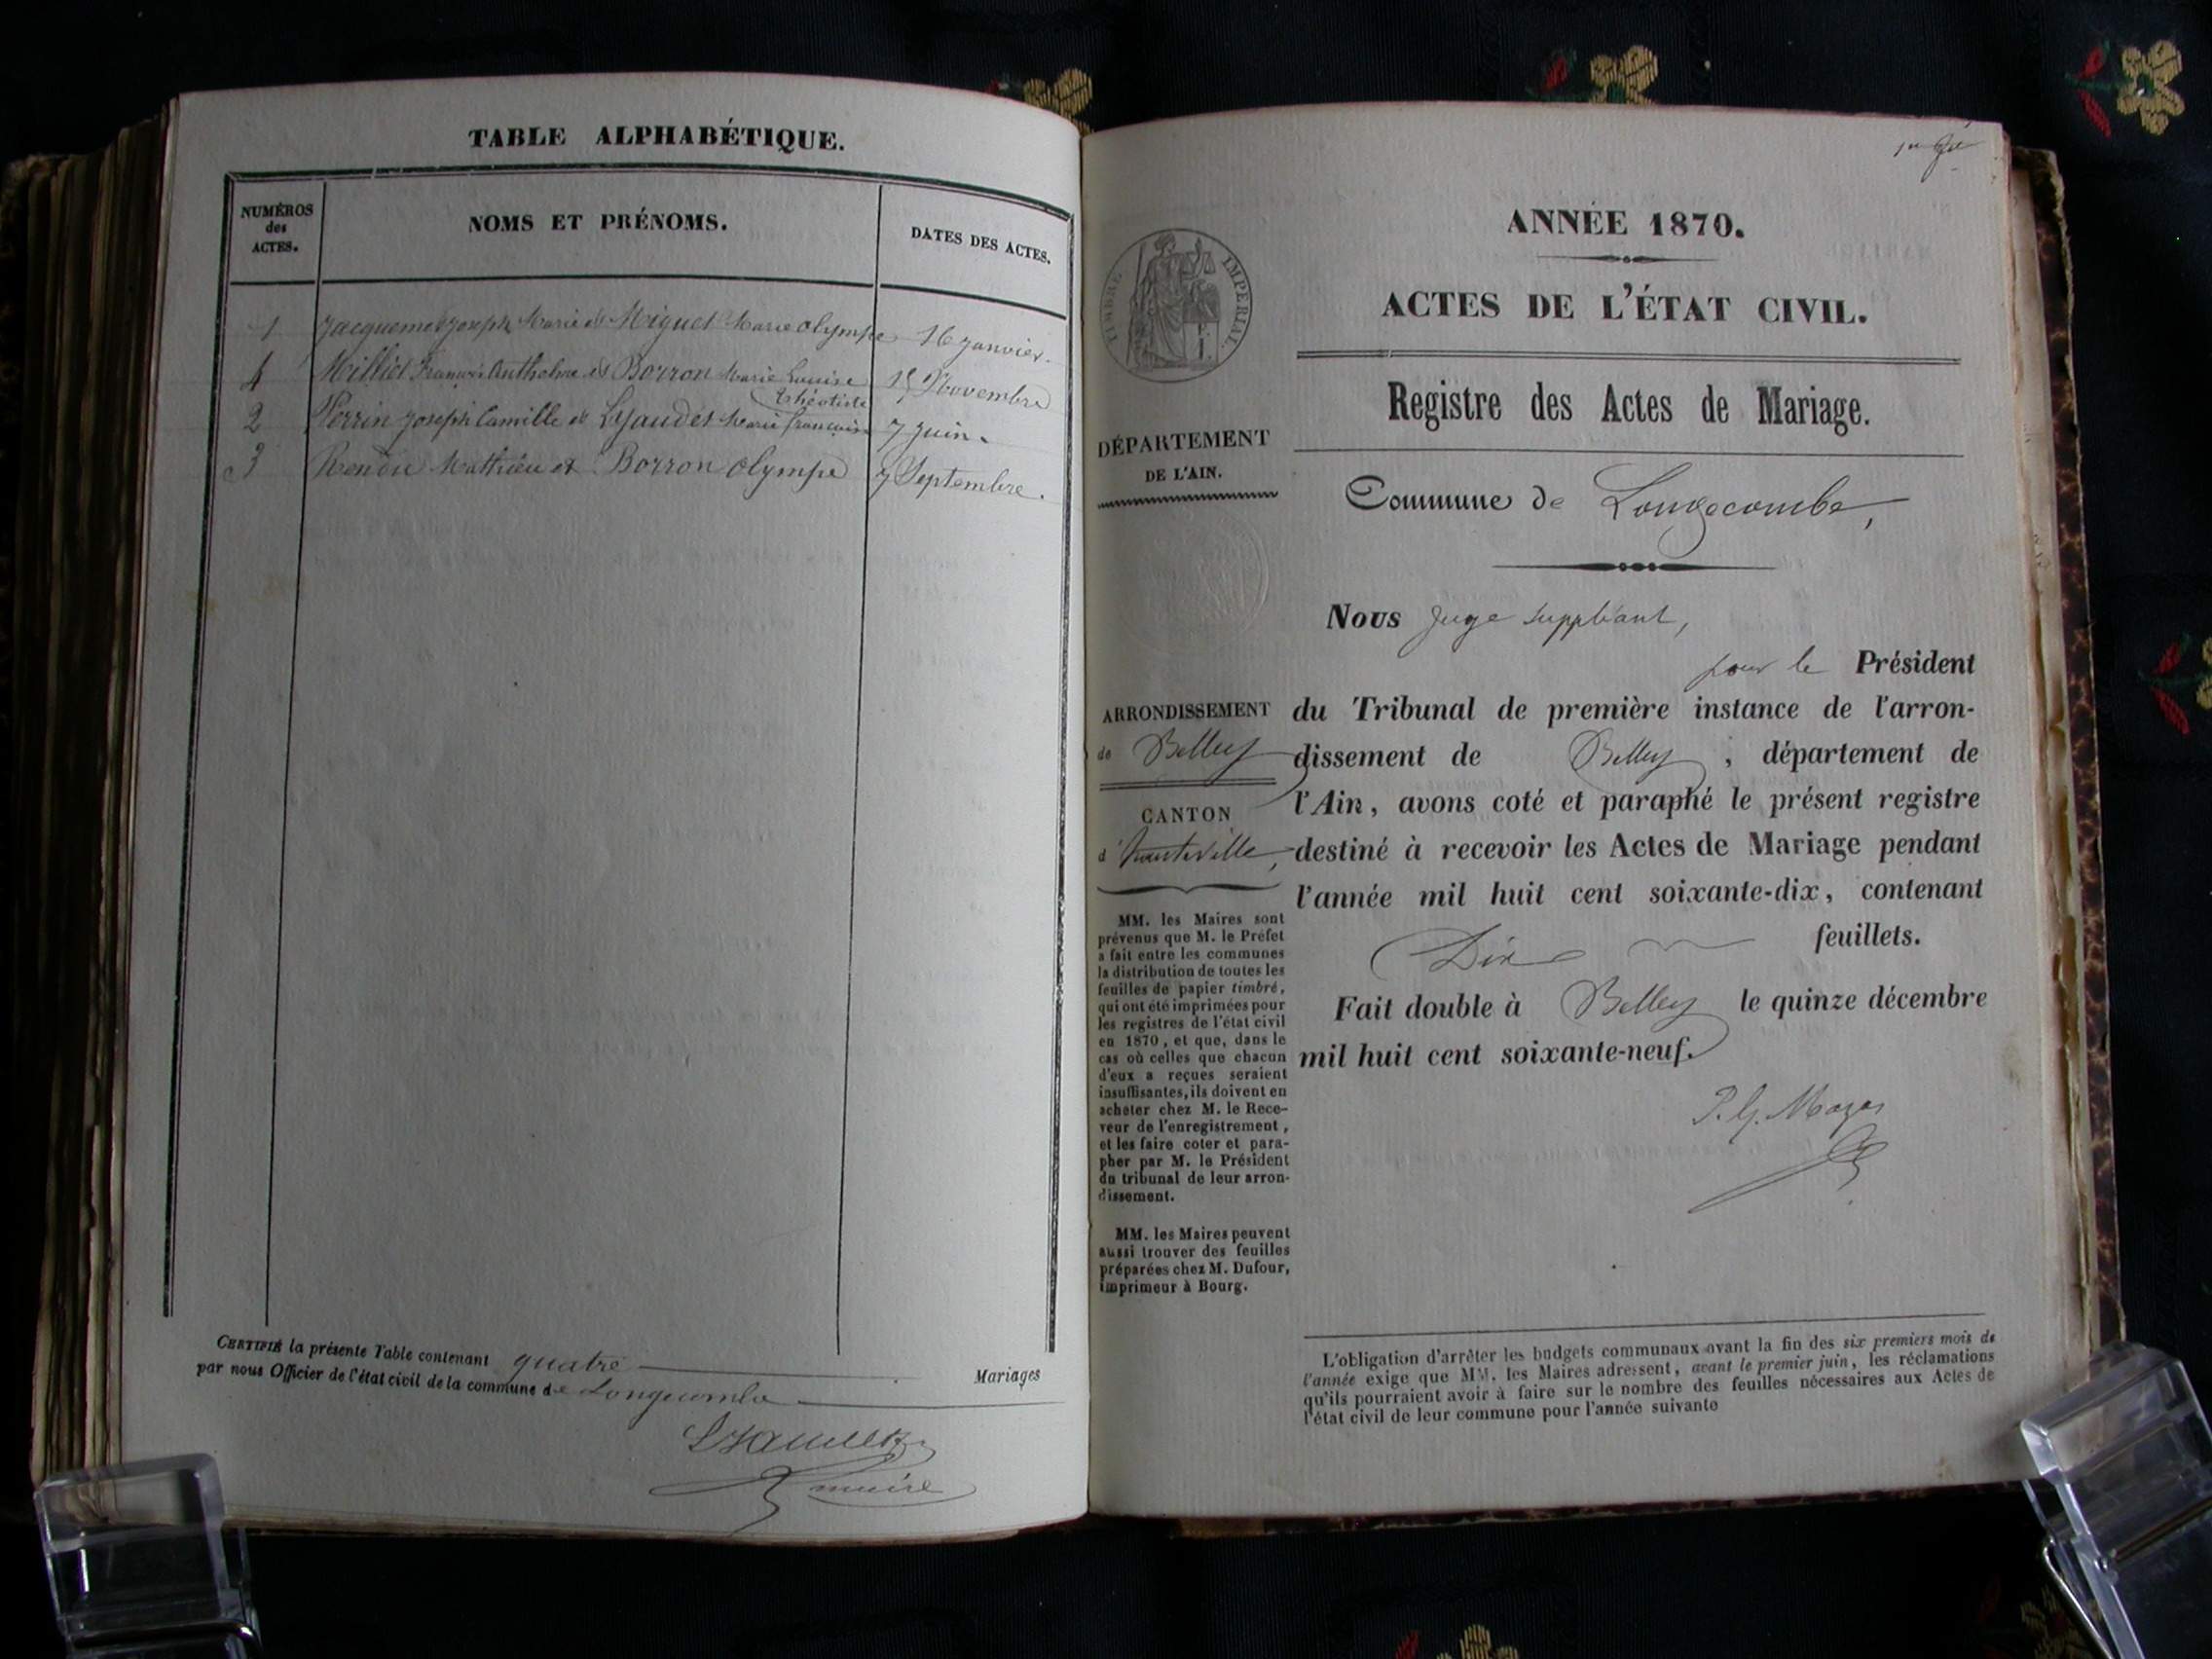 TABLE ALPHABÉTIQUE.
NUMÉROS
des
ACTES.
NOMS ET PRÉNOMS.
DATES DES ACTES.
1 Jacquemet Joseph Marie et Miguet Marie Olympe 16 Janvier.
4 Milliet François Anthelme et Borron Marie Louise 15 Novembre
Théotiste
2 Perrin Joseph Camille et Lyaudet Marie françoise 7 Juin.
3 Rendu Mathieu et Borron Olympe 7 Septembre.
CERTIFIÉ la présente Table contenant quatre Mariages
par nous Officier de l'état civil de la commune de Longecombe
maire
ANNÉE 1870.
ACTES DE L'ÉTAT CIVIL.
TIMBRE IMPÉRIAL.
Registre des Actes de Mariage.
DÉPARTEMENT
DE L'AIN.
Commune de Longecombe,
Nous Juge suppléant,
pour le Président
du Tribunal de première instance de l'arron-
dissement de Belley, département de
l'Ain, avons coté et paraphé le présent registre
destiné à recevoir les Actes de Mariage pendant
l'année mil huit cent soixante-dix, contenant
Dix feuillets.
Fait double à Belley le quinze décembre
mil huit cent soixante-neuf.
ARRONDISSEMENT
de Belley
CANTON
d'hauteville,
MM. les Maires sont
prévenus que M. le Préfet
a fait entre les communes
la distribution de toutes les
feuilles de papier timbré,
qui ont été imprimées pour
les registres de l'état civil
en 1870, et que, dans le
cas où celles que chacun
d'eux a reçues seraient
insuffisantes, ils doivent en
acheter chez M. le Rece-
veur de l'enregistrement,
et les faire coter et para-
pher par M. le Président
du tribunal de leur arron-
dissement.
MM. les Maires peuvent
aussi trouver des feuilles
préparées chez M. Dufour,
imprimeur à Bourg.
L'obligation d'arrêter les budgets communaux avant la fin des six premiers mois de
l'année exige que MM. les Maires adressent, avant le premier juin, les réclamations
qu'ils pourraient avoir à faire sur le nombre des feuilles nécessaires aux Actes de
l'état civil de leur commune pour l'année suivante